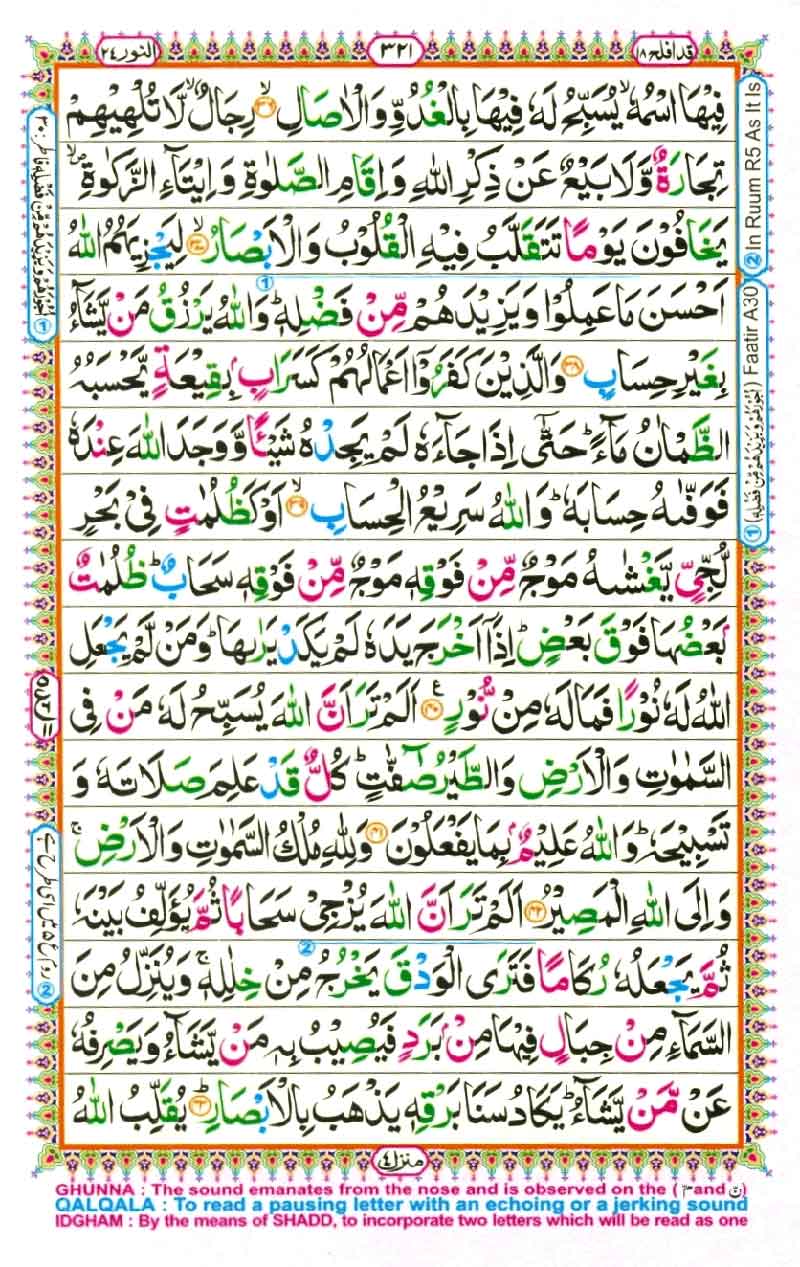 قد افلح ١٨
٣٢١
النور ٢٤
فِيْهَا اسْمُهٗ ۙ يُسَبِّحُ لَهٗ فِيْهَا بِالْغُدُوِّ وَالْاٰصَالِ ۙ‏﴿۳۶﴾ رِجَالٌ ۙ لَّا تُلْهِيْهِمْ
تِجَارَةٌ وَّلَا بَيْعٌ عَنْ ذِكْرِ اللّٰهِ وَاِقَامِ الصَّلٰوةِ وَاِيْتَآءِ الزَّكٰوةِ ۙ
يَخَافُوْنَ يَوْمًا تَتَقَلَّبُ فِيْهِ الْقُلُوْبُ وَالْاَبْصَارُ ۙ‏﴿۳۷﴾ لِيَجْزِيَهُمُ اللّٰهُ
اَحْسَنَ مَا عَمِلُوْا وَيَزِيْدَهُمْ مِّنْ فَضْلِهٖ ؕ وَاللّٰهُ يَرْزُقُ مَنْ يَّشَآءُ
بِغَيْرِ حِسَابٍ ﴿۳۸﴾ وَالَّذِيْنَ كَفَرُوْۤا اَعْمَالُهُمْ كَسَرَابٍۭ بِقِيْعَةٍ يَّحْسَبُهُ
الظَّمْاٰنُ مَآءً ؕ حَتّٰۤى اِذَا جَآءَهٗ لَمْ يَجِدْهُ شَيْـًٔا وَّوَجَدَ اللّٰهَ عِنْدَهٗ
فَوَفّٰىهُ حِسَابَهٗ ؕ وَاللّٰهُ سَرِيْعُ الْحِسَابِ ۙ‏﴿۳۹﴾ اَوْ كَظُلُمٰتٍ فِيْ بَحْرٍ
لُّجِّيٍّ يَّغْشٰىهُ مَوْجٌ مِّنْ فَوْقِهٖ مَوْجٌ مِّنْ فَوْقِهٖ سَحَابٌ ؕ ظُلُمٰتٌۢ
بَعْضُهَا فَوْقَ بَعْضٍ ؕ اِذَاۤ اَخْرَجَ يَدَهٗ لَمْ يَكَدْ يَرٰىهَا ؕ وَمَنْ لَّمْ يَجْعَلِ
اللّٰهُ لَهٗ نُوْرًا فَمَا لَهٗ مِنْ نُّوْرٍ ﴿۴۰﴾ اَلَمْ تَرَ اَنَّ اللّٰهَ يُسَبِّحُ لَهٗ مَنْ فِي
السَّمٰوٰتِ وَالْاَرْضِ وَالطَّيْرُ صٰٓفّٰتٍ ؕ كُلٌّ قَدْ عَلِمَ صَلَاتَهٗ وَ
تَسْبِيْحَهٗ ؕ وَاللّٰهُ عَلِيْمٌۢ بِمَا يَفْعَلُوْنَ ﴿۴۱﴾ وَلِلّٰهِ مُلْكُ السَّمٰوٰتِ وَالْاَرْضِ ۚ
وَاِلَى اللّٰهِ الْمَصِيْرُ ﴿۴۲﴾ اَلَمْ تَرَ اَنَّ اللّٰهَ يُزْجِيْ سَحَابًا ثُمَّ يُؤَلِّفُ بَيْنَهٗ
ثُمَّ يَجْعَلُهٗ رُكَامًا فَتَرَى الْوَدْقَ يَخْرُجُ مِنْ خِلٰلِهٖ ۚ وَيُنَزِّلُ مِنَ
السَّمَآءِ مِنْ جِبَالٍ فِيْهَا مِنْۢ بَرَدٍ فَيُصِيْبُ بِهٖ مَنْ يَّشَآءُ وَيَصْرِفُهٗ
عَنْ مَّنْ يَّشَآءُ ؕ يَكَادُ سَنَا بَرْقِهٖ يَذْهَبُ بِالْاَبْصَارِ ؕ‏﴿۴۳﴾ يُقَلِّبُ اللّٰهُ
منزل ٤
② In Ruum R5 As It Is
① (اُجُوْرَهُمْ وَيَزِيْدَهُمْ مِّنْ فَضْلِهٖ) Faatir A30
① اُجُوْرَهُمْ وَيَزِيْدَهُمْ مِّنْ فَضْلِهٖ فاطر : ٣٠
GHUNNA : The sound emanates from the nose and is observed on the ( مّ and نّ )
QALQALA : To read a pausing letter with an echoing or a jerking sound
IDGHAM : By the means of SHADD, to incorporate two letters which will be read as one